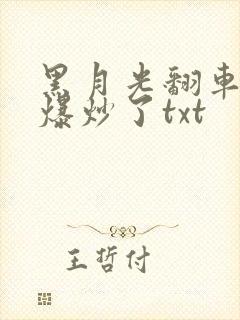 黑月光翻車
爆炒了txt
王哲付